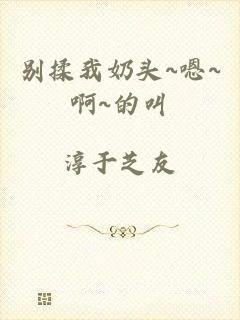 别揉我奶头~嗯~
啊~的叫
淳于芝友